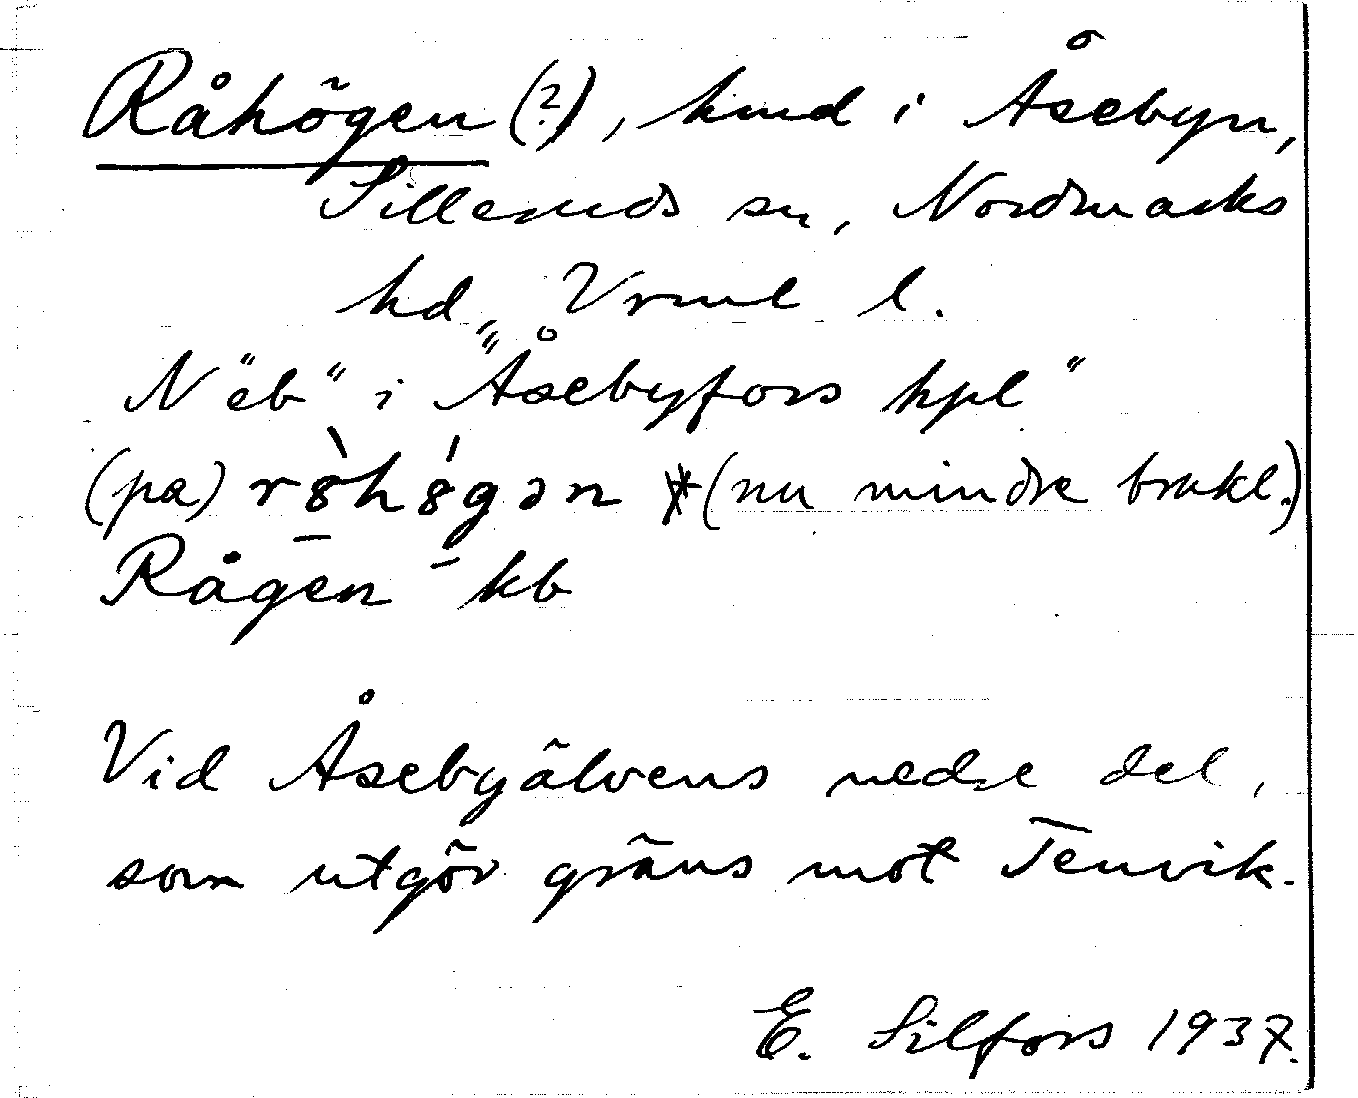 Råhögen (?), hmd i Åsebyn,
Silleruds sn, Nordmarks
hd, Vrml l.
N "eb" i "Åsebyfors hpl"
(pa) r8̀h8́gən *(nu mindre brukl.)
Rågen - kb
Vid Åsebyälvens nedre del,
som utgör gräns mot Tenvik.
E. Silfors 1937.